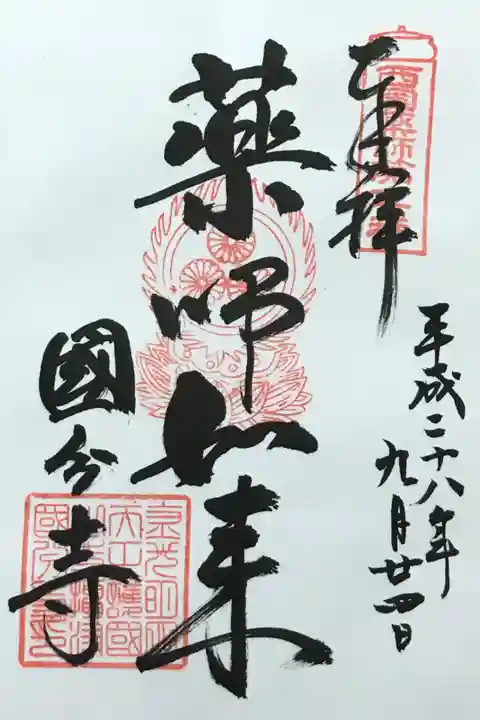 奉拝
平成二十八年
九月廿四日
薬師如来
國分寺